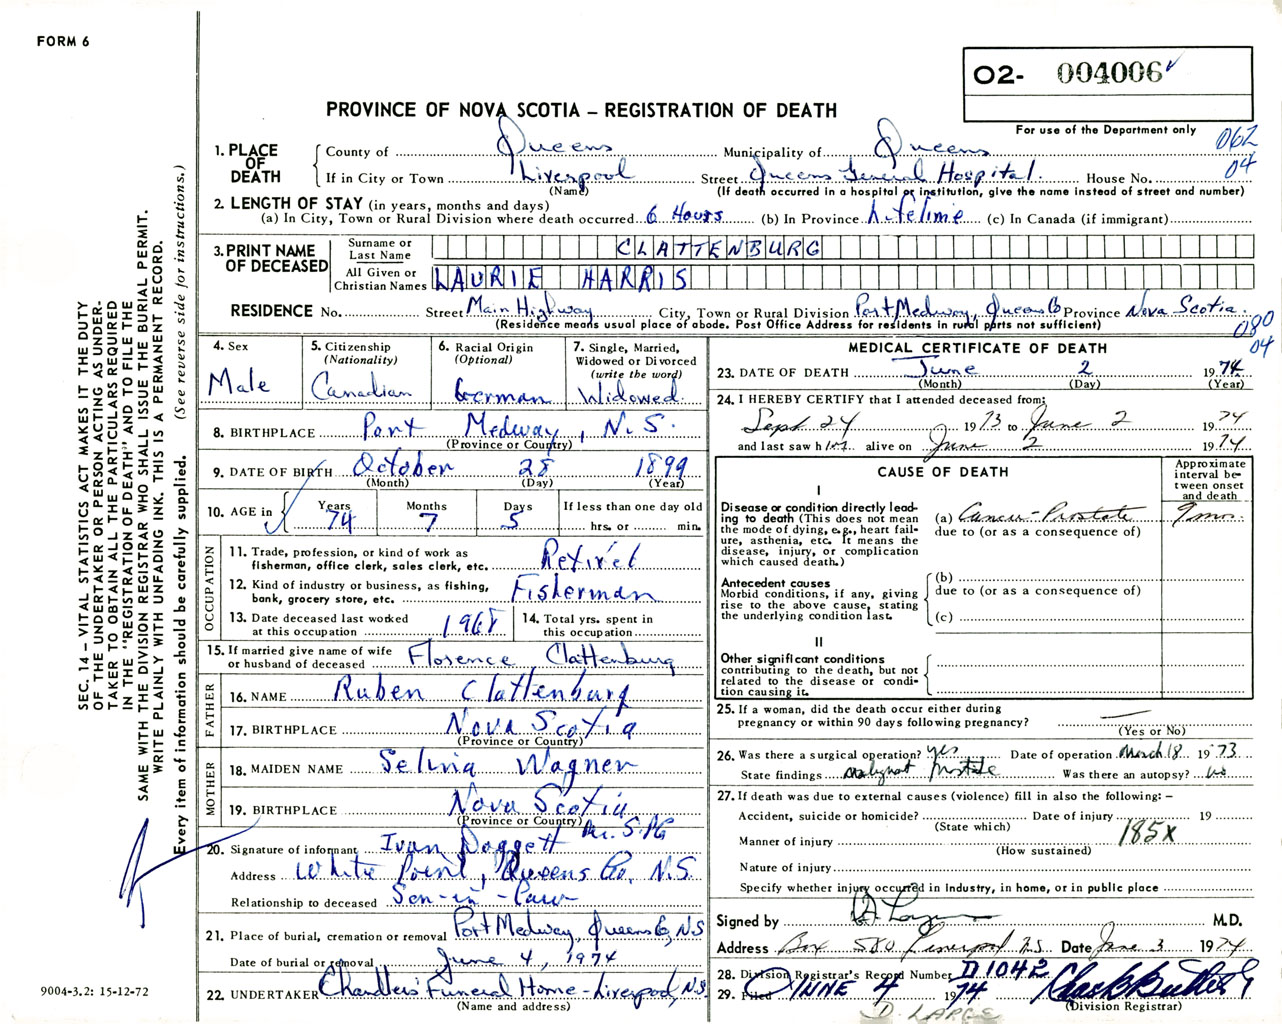 FORM 6
O2- 004006
PROVINCE OF NOVA SCOTIA – REGISTRATION OF DEATH
For use of the Department only
062
04
1. PLACE OF DEATH
County of Queens Municipality of Queens
If in City or Town Liverpool Street Queens General Hospital. House No.
(Name) (If death occurred in a hospital or institution, give the name instead of street and number)
2. LENGTH OF STAY (in years, months and days)
(a) In City, Town or Rural Division where death occurred 6 Hours (b) In Province Lifetime (c) In Canada (if immigrant)
3. PRINT NAME OF DECEASED
Surname or Last Name CLATTENBURG
All Given or Christian Names LAURIE HARRIS
RESIDENCE No. Street Main Highway City, Town or Rural Division Port Medway, Queens Co Province Nova Scotia.
(Residence means usual place of abode. Post Office Address for residents in rural parts not sufficient)
080
04
4. Sex
Male
5. Citizenship
(Nationality)
Canadian
6. Racial Origin
(Optional)
German
7. Single, Married,
Widowed or Divorced
(write the word)
Widowed
8. BIRTHPLACE Port Medway, N.S.
(Province or Country)
9. DATE OF BIRTH October 28 1899
(Month) (Day) (Year)
10. AGE in Years Months Days If less than one day old
74 7 5 hrs. or min.
OCCUPATION
11. Trade, profession, or kind of work as
fisherman, office clerk, sales clerk, etc. Retired
12. Kind of industry or business, as fishing,
bank, grocery store, etc. Fisherman
13. Date deceased last worked
at this occupation 1968
14. Total yrs. spent in
this occupation
15. If married give name of wife
or husband of deceased Florence Clattenburg
FATHER
16. NAME Ruben Clattenburg
17. BIRTHPLACE Nova Scotia
(Province or Country)
MOTHER
18. MAIDEN NAME Selina Wagner
19. BIRTHPLACE Nova Scotia
(Province or Country)
20. Signature of informant Ivan Doggett
Address White Point, Queens Co. N.S.
Relationship to deceased Son-in-law
21. Place of burial, cremation or removal Port Medway, Queens Co, N.S
Date of burial or removal June 4, 1974
22. UNDERTAKER Chandlers' Funeral Home - Liverpool, N.S.
(Name and address)
MEDICAL CERTIFICATE OF DEATH
23. DATE OF DEATH June 2 1974
(Month) (Day) (Year)
24. I HEREBY CERTIFY that I attended deceased from:
Sept 24 1973 to June 2 1974
and last saw him alive on June 2 1974
CAUSE OF DEATH
Approximate
interval be-
tween onset
and death
I
Disease or condition directly lead-
ing to death (This does not mean
the mode of dying, e.g., heart fail-
ure, asthenia, etc. It means the
disease, injury, or complication
which caused death.)
(a) Cancer - Prostate 9 mos.
due to (or as a consequence of)
Antecedent causes
Morbid conditions, if any, giving
rise to the above cause, stating
the underlying condition last.
(b)
due to (or as a consequence of)
(c)
II
Other significant conditions
contributing to the death, but not
related to the disease or condi-
tion causing it.
25. If a woman, did the death occur either during
pregnancy or within 90 days following pregnancy?
(Yes or No)
26. Was there a surgical operation? yes Date of operation March 18 1973
State findings malignant Prostate Was there an autopsy? no
27. If death was due to external causes (violence) fill in also the following: –
Accident, suicide or homicide? Date of injury 19
(State which)
185X
Manner of injury
(How sustained)
Nature of injury
Specify whether injury occurred in Industry, in home, or in public place
Signed by M.D.
Address Box 580 Liverpool N.S. Date June 3 1974
28. Division Registrar's Record Number D1042
29. Filed JUNE 4 1974
(Division Registrar)
D. LARGE
SEC. 14 – VITAL STATISTICS ACT MAKES IT THE DUTY
OF THE UNDERTAKER OR PERSON ACTING AS UNDER-
TAKER TO OBTAIN ALL THE PARTICULARS REQUIRED
IN THE "REGISTRATION OF DEATH" AND TO FILE THE
SAME WITH THE DIVISION REGISTRAR WHO SHALL ISSUE THE BURIAL PERMIT.
WRITE PLAINLY WITH UNFADING INK. THIS IS A PERMANENT RECORD.
Every item of information should be carefully supplied. (See reverse side for instructions.)
9004-3.2: 15-12-72